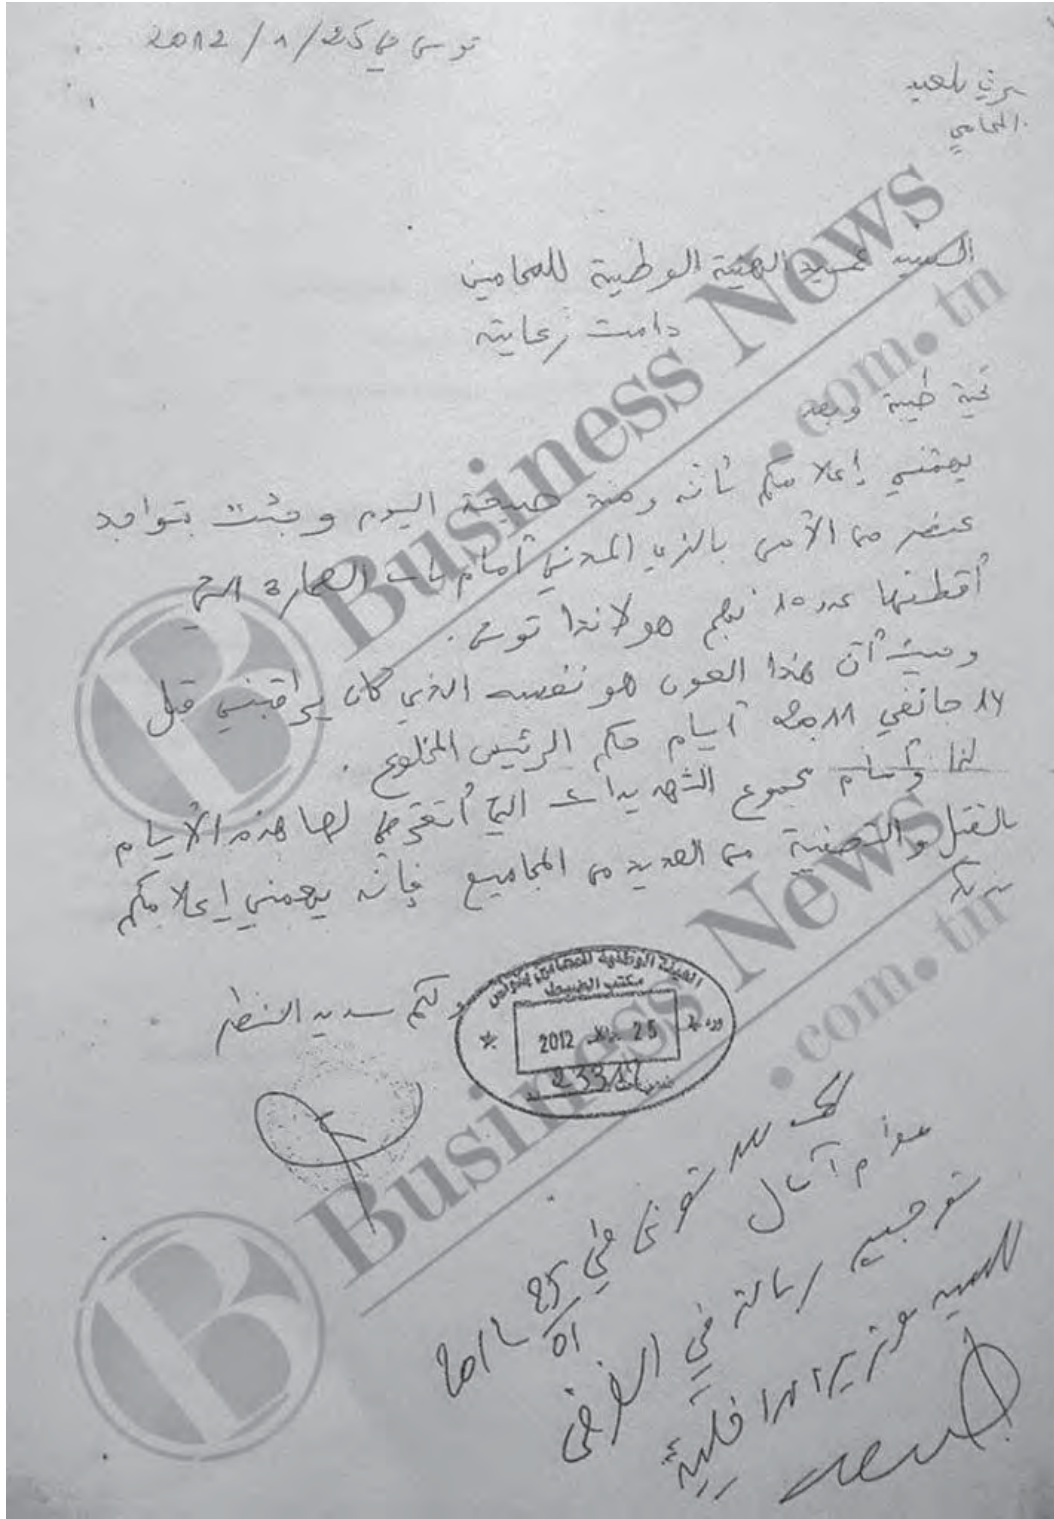 تونس في 25/1/2012
شكري بلعيد
المحامي
السيد عميد الهيئة الوطنية للمحامين
دامت رعايته
تحية طيبة وبعد
يهمني إعلامكم بأنه ومنذ صبيحة اليوم وجدت بتواجد
عنصر من الأمن بالزي المدني أمام باب العمارة التي
أقطنها عدد 10 نهج هولاندا تونس.
وحيث أن هذا العون هو نفسه الذي كان يراقبني قبل
14 جانفي 2011 أيام حكم الرئيس المخلوع.
لذا وأمام مجموع التهديدات التي أتعرض لها هذه الأيام
بالقتل والتصفية من العديد من المجاميع فإنه يهمني إعلامكم
بذلك
ولكم سديد النظر
الهيئة الوطنية للمحامين بتونس
مكتب الضبط
ورد في
25 جانفي 2012
تونس في 25/01/2012
توجيه رسالة في الغرض
للسيد وزير الداخلية
Business News
.com.tn
Business News
.com.tn